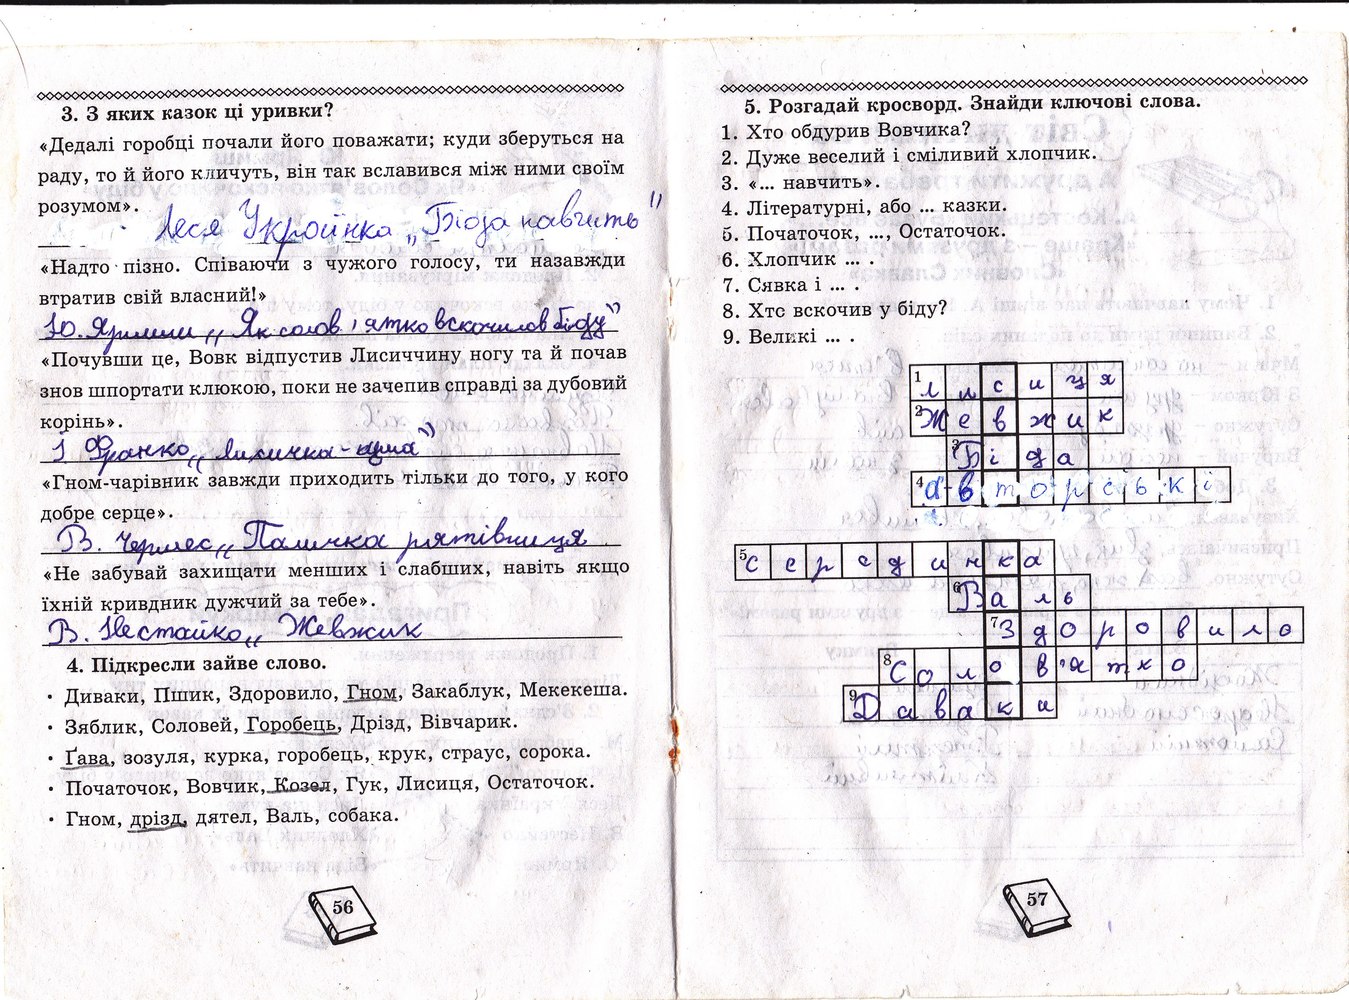 3. З яких казок ці уривки?
«Дедалі горобці почали його поважати; куди зберуться на
раду, то й його кличуть, він так вславився між ними своїм
розумом».
Леся Українка „Біда навчить"
«Надто пізно. Співаючи з чужого голосу, ти назавжди
втратив свій власний!»
Ю. Ярмиш „Як солов'ятко вскочило в біду"
«Почувши це, Вовк відпустив Лисиччину ногу та й почав
знов шпортати клюкою, поки не зачепив справді за дубовий
корінь».
І Франко „Лисичка-кума"
«Гном-чарівник завжди приходить тільки до того, у кого
добре серце».
В. Чермес „Паличка рятівниця
«Не забувай захищати менших і слабших, навіть якщо
їхній кривдник дужчий за тебе».
В. Нестайко „Жевжик
4. Підкресли зайве слово.
· Диваки, Пішик, Здоровило, Гном, Закаблук, Мекекеша.
· Зяблик, Соловей, Горобець, Дрізд, Вівчарик.
· Ґава, зозуля, курка, горобець, крук, страус, сорока.
· Початочок, Вовчик, Козел, Гук, Лисиця, Остаточок.
· Гном, дрізд, дятел, Валь, собака.
56
5. Розгадай кросворд. Знайди ключові слова.
1. Хто обдурив Вовчика?
2. Дуже веселий і сміливий хлопчик.
3. «... навчить».
4. Літературні, або ... казки.
5. Початочок, ..., Остаточок.
6. Хлопчик ... .
7. Сявка і ... .
8. Хто вскочив у біду?
9. Великі ... .
1 Лисиця
2 Жевжик
3 Біда
4 авторські
5 Серединка
6 Валь
7 Здоровило
8 Солов'ятко
9 Диваки
57